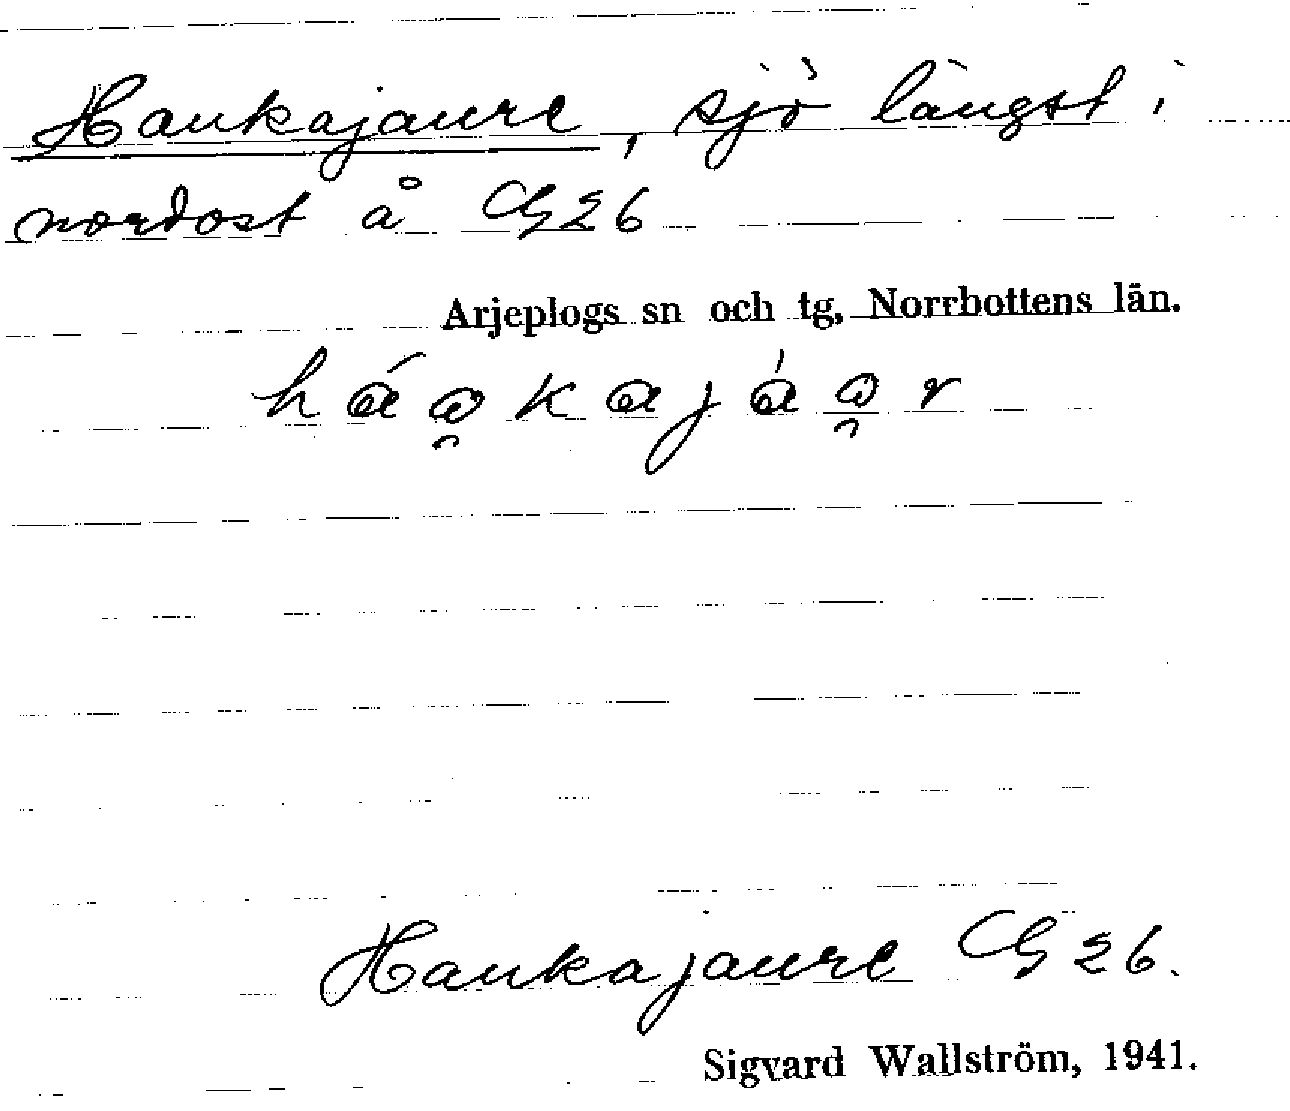 Haukajaure, sjö längst i
nordost å G26
Arjeplogs sn och tg, Norrbottens län.
Haukajaure G 26.
Sigvard Wallström, 1941.